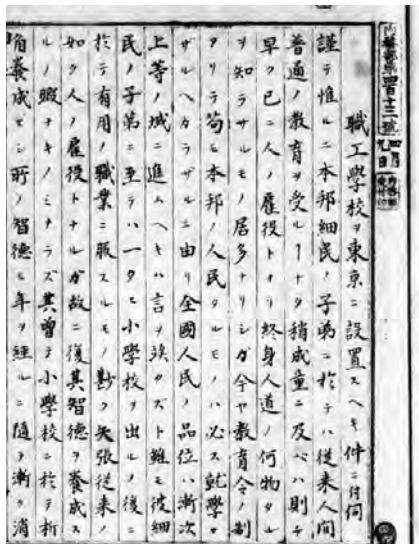 職工學校ヲ東京ニ設置スヘキ件ニ付伺
謹テ惟ルニ本邦細民ノ子弟ニ於テハ従来人間
普通ノ教育ヲ受ルヿナク稍成童ニ及ヘハ則チ
早ク已ニ人ノ雇役トナリ終身人道ノ何物タル
ヲ知ラサルモノ居多ナリシガ今ヤ教育令ノ制
アリテ苟モ本邦ノ人民タルモノハ必ス就學セ
ザルヘカラザルニ由リ全國人民ノ品位ハ漸次
上等ノ域ニ進ムヘキハ言ヲ竢タズト雖モ彼細
民ノ子弟ニ至テハ一タヒ小學校ヲ出ルノ後ニ
於テ有用ノ職業ニ服スルモノ尠ク矢張従来ノ
如ク人ノ雇役トナルガ故ニ復其智德ヲ養成ス
ルノ暇ナキノミナラズ其曽テ小學校ニ於テ折
角養成セシ所ノ智德モ年ヲ経ルニ随ヲ漸ク消